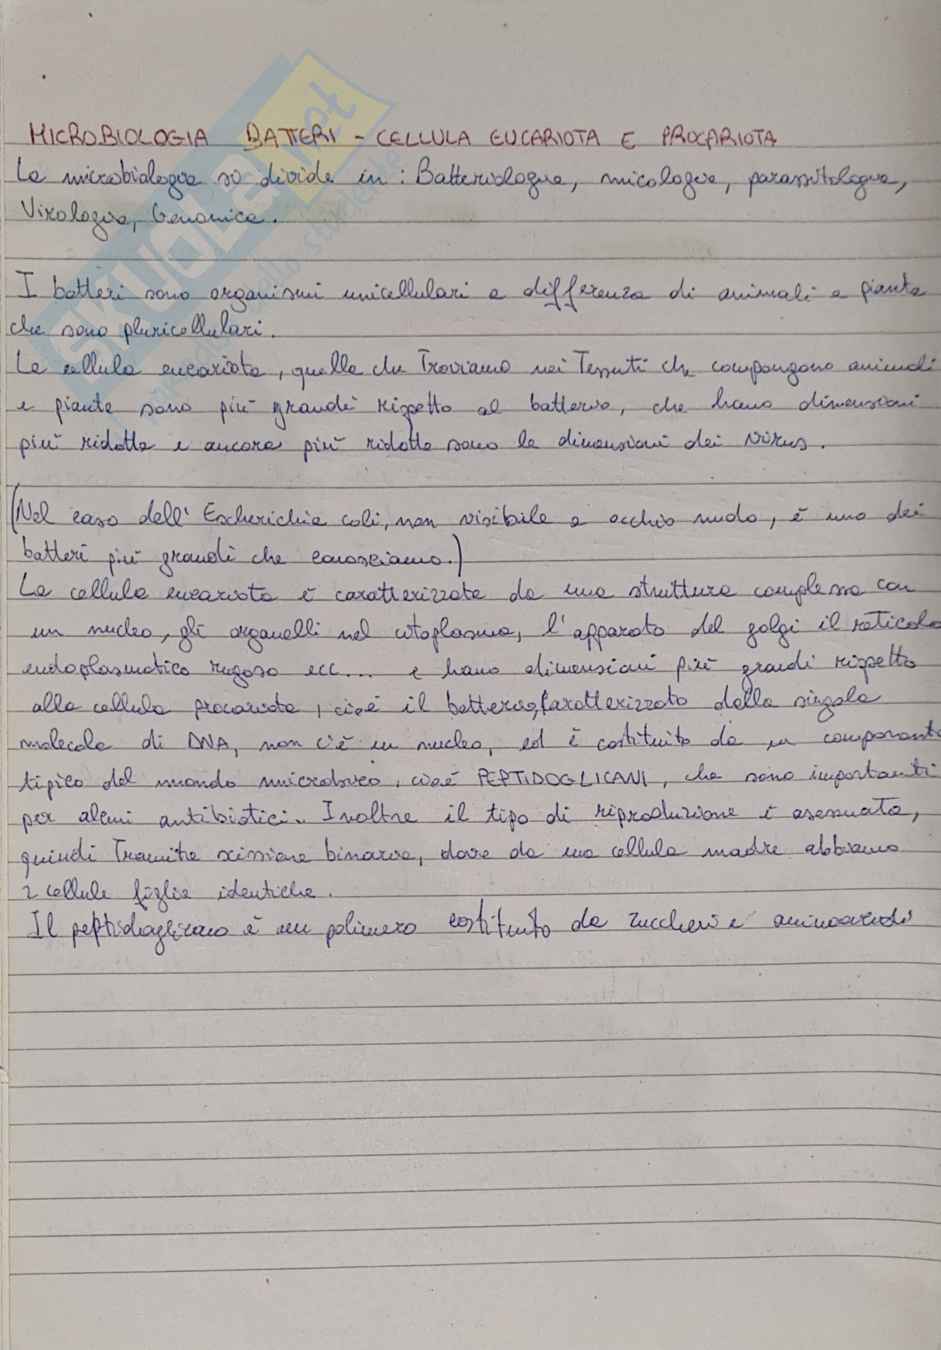 MICROBIOLOGIA BATTERI - CELLULA EUCARIOTA E PROCARIOTA
La microbiologia si divide in: Batteriologia, micologia, parassitologia,
Virologia, Genomica.
I batteri sono organismi unicellulari a differenza di animali e piante
che sono pluricellulari.
La cellula eucariota, quella che Troviamo nei Tessuti che compongono animali
e piante sono più grandi rispetto al batterio, che hano dimensioni
più ridotte e ancora più ridotte sono le dimensioni dei virus.
(Nel caso dell' Escherichia coli, non visibile a occhio nudo, è uno dei
batteri più grandi che conosciamo.)
La cellula eucariota è caratterizzata da una struttura complessa con
un nucleo, gli organelli nel citoplasma, l'apparato del golgi il reticolo
endoplasmatico rugoso ecc... e hano dimensioni più grandi rispetto
alla cellula procariota, cioè il batterio, caratterizzato dalla singola
molecola di DNA, non c'è un nucleo, ed è costituito da un componente
tipico del mondo microbico, cioè PEPTIDOGLICANI, che sono importanti
per alcuni antibiotici. Inoltre il tipo di riproduzione è asessuata,
quindi Tramite scissione binaria, dove da una cellula madre abbiamo
2 cellule figlie identiche.
Il peptidoglicano è un polimero costituito da zuccheri e aminoacidi
SKUOLA.net